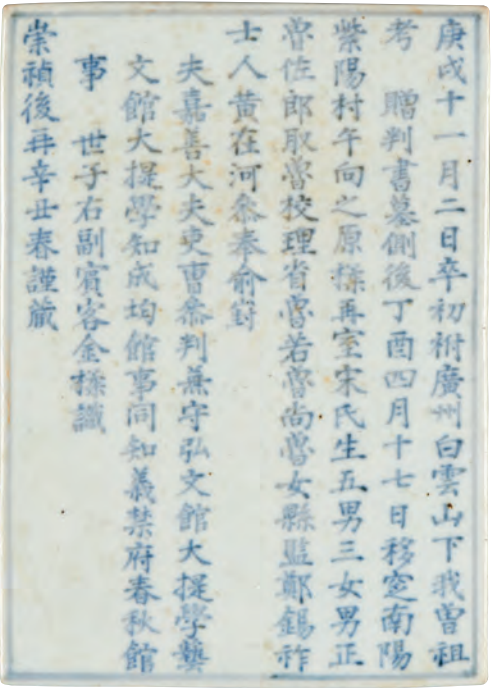 庚戌十一月二日卒初祔廣州白雲山下我曾祖
考　贈判書墓側後丁酉四月十七日移窆南陽
紫陽村午向之原楺再室宋氏生五男三女男正
魯佐郎取魯校理省魯若魯尚魯女縣監鄭錫祚
士人黄在河叅奉俞
夫嘉善大夫吏曹叅判兼守弘文館大提學藝
文館大提學知成均館事同知義禁府春秋館
事　世子右副賓客金楺識
崇禎後再辛丑春謹蕆